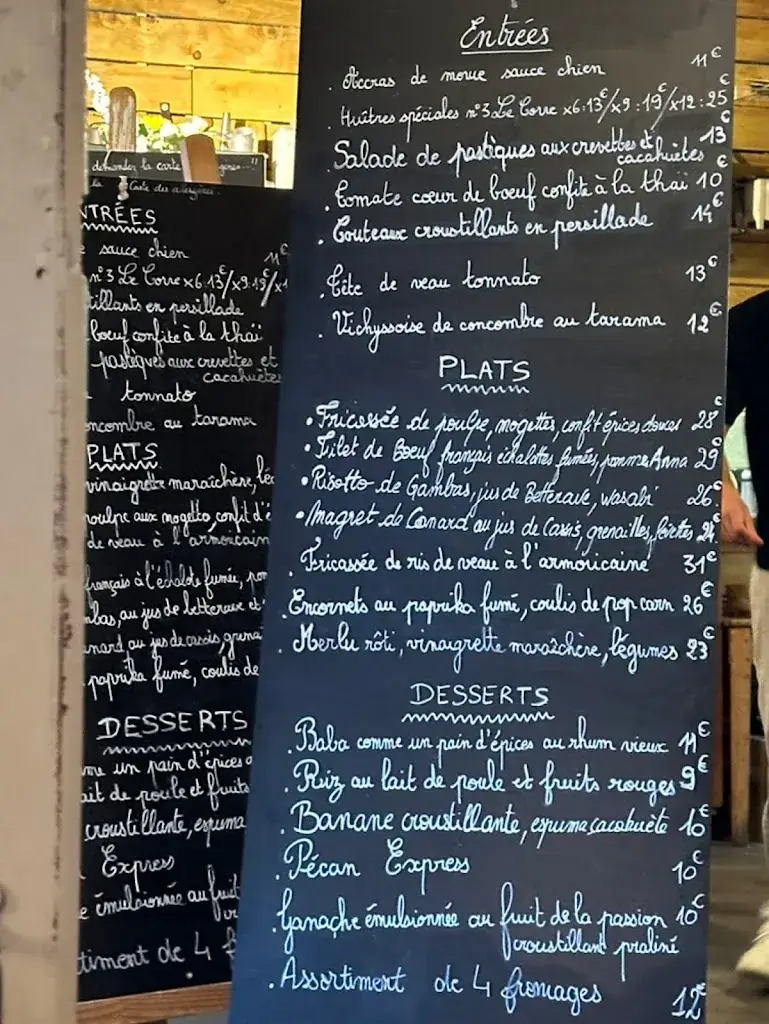 Entrées
. Accras de morue sauce chien 11€
. Huîtres spéciales n°3 Le Corre x6:13€/x9:19€/x12:25€
Salade de pastèques aux crevettes et cacahuètes 13€
. Tomate cœur de bœuf confite à la thaï 10€
. Couteaux croustillants en persillade 14€
. Tête de veau tonnato 13€
. Vichyssoise de concombre au tarama 12€
PLATS
• Fricassée de poulpe, mogettes, confit épices douces 28€
• Filet de Boeuf français échalottes fumées, pomme Anna 29€
• Risotto de Gambas, jus de Betterave, wasabi 26€
• Magret de Canard au jus de Cassis, grenailles, 24€
. Fricassée de ris de veau à l'armoricaine 31€
. Encornets au paprika fumé, coulis de pop corn 26€
. Merlu rôti, vinaigrette maraîchère, légumes 23€
DESSERTS
. Baba comme un pain d'épices au rhum vieux 11€
. Riz au lait de poule et fruits rouges 9€
. Banane croustillante, espuma cacahuète 10€
. Pécan Express 10€
. Ganache émulsionnée au fruit de la passion 10€
croustillant praliné
. Assortiment de 4 fromages 12€
demander la carte
la Carte des allergènes
NTRÉES
sauce chien 11€
n°3 Le Corre x6:13€/x9:19€/x1
tillants en persillade
boeuf confite à la thaï
pastèques aux crevettes et
cacahuètes
tonnato
oncombre au tarama
PLATS
vinaigrette maraîchère, lé
poulpe aux mogette, confit d'é
de veau à l'armoricain
français à l'échalote fumée, pom
bas, au jus de betterave et
nard au jus de cassis, grena
paprika fumé, coulis de
DESSERTS
me un pain d'épices a
ait de poule et fruits
croustillante, espuma
Express
e émulsionnée au fruit
timent de 4 f